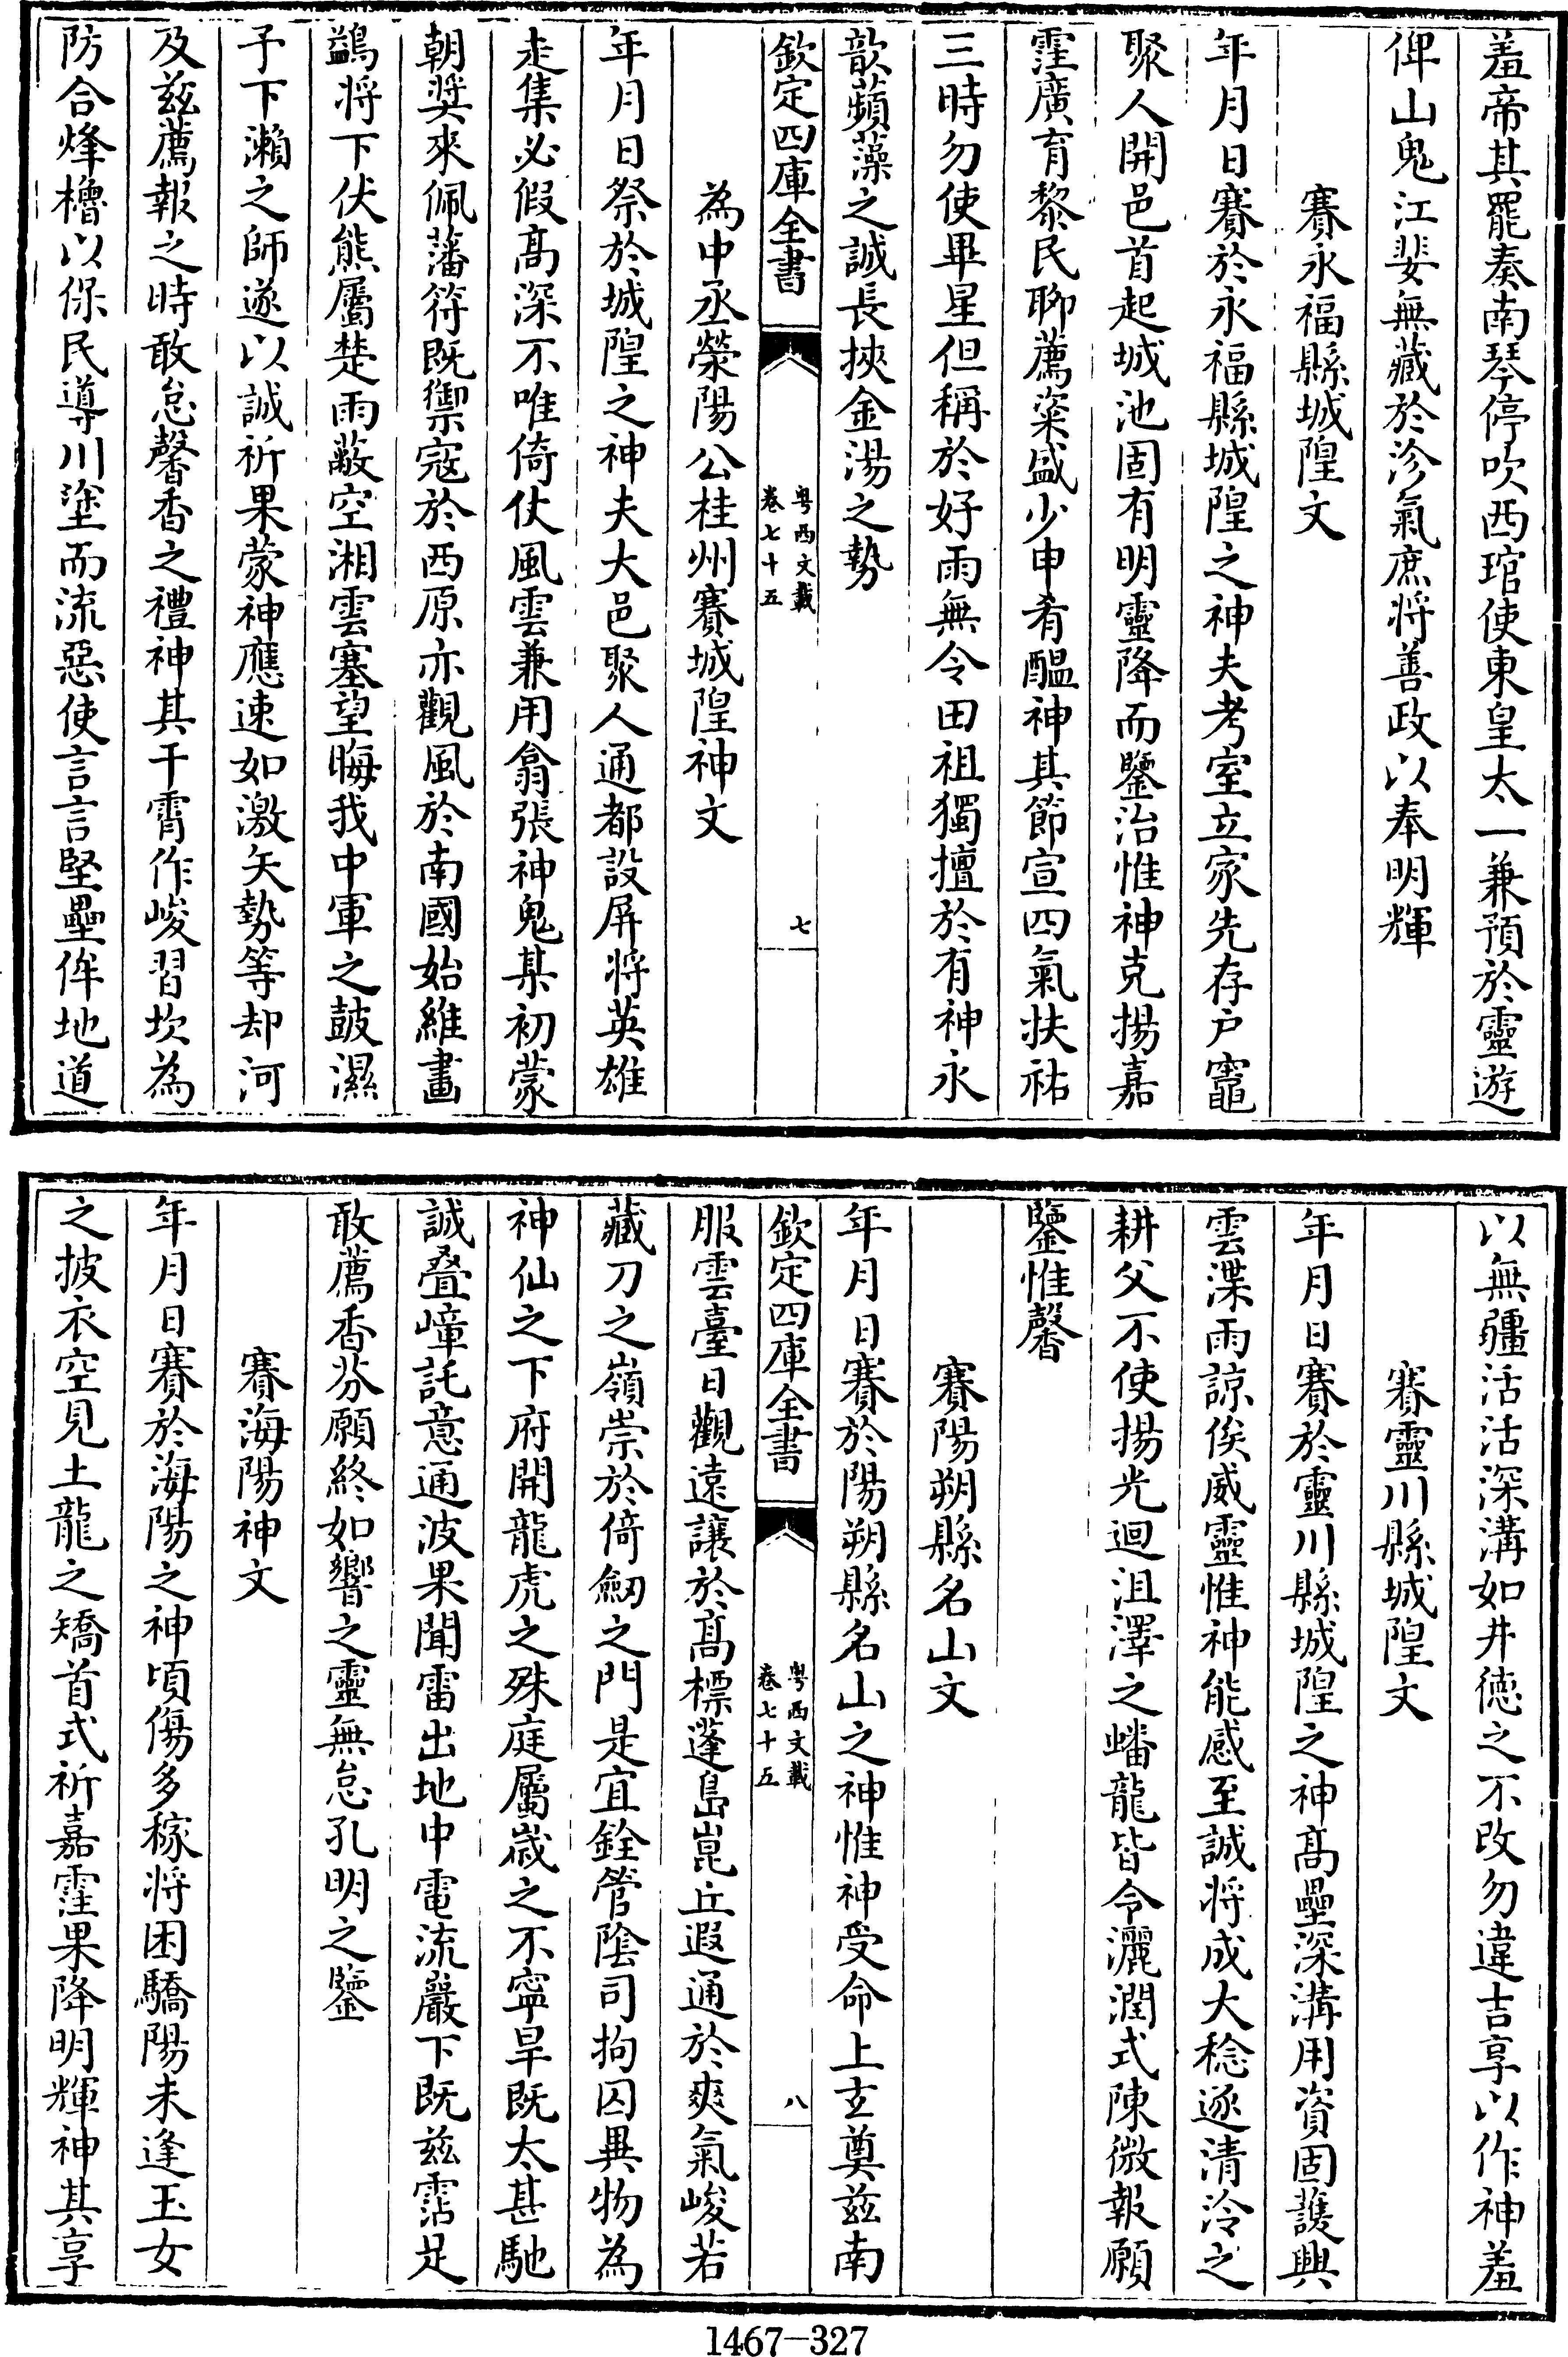 羞帝其罷奏南琴停吹西琯使東皇太一兼預於靈遊
俾山鬼江婓無藏於沴氣庶将善政以奉明輝
賽永福縣城隍文
年月日賽於永福縣城隍之神夫考室立家先存户竈
聚人開邑首起城池固有明靈降而鑒治惟神克揚嘉
霔廣育黎民聊薦粢盛少申肴醖神其節宣四氣扶祐
三時勿使畢星但稱於好雨無令田祖獨擅於有神永
歆蘋藻之誠長挾金湯之勢
欽定四庫全書
粤西文載
卷七十五
七
為中丞滎陽公桂州賽城隍神文
年月日祭於城隍之神夫大邑聚人通都設屏将英雄
走集必假髙深不唯倚仗風雲兼用翕張神鬼某初蒙
朝奬來佩藩符既禦寇於西原亦觀風於南國始維畫
鷁将下伏熊屬楚雨蔽空湘雲塞望晦我中軍之鼓濕
予下瀨之師遂以誠祈果蒙神應速如激矢勢等却河
及兹薦報之時敢怠馨香之禮神其干霄作峻習坎為
防合烽櫓以保民導川塗而流惡使言言堅壘侔地道
以無疆活活深溝如井徳之不改勿違吉享以作神羞
賽靈川縣城隍文
年月日賽於靈川縣城隍之神髙壘深溝用資固護興
雲渫雨諒俟威靈惟神能感至誠将成大稔逐清泠之
耕父不使揚光迴沮澤之蟠龍皆令灑潤式陳微報願
鑒惟馨
賽陽朔縣名山文
年月日賽於陽朔縣名山之神惟神受命上玄奠兹南
欽定四庫全書
粤西文載
卷七十五
八
服雲臺日觀遠讓於髙標蓬島崑丘遐通於爽氣峻若
藏刀之嶺崇於倚劒之門是宜銓管陰司拘囚異物為
神仙之下府開龍虎之殊庭屬嵗之不寧旱既太甚馳
誠叠嶂託意通波果聞雷出地中電流巖下既兹霑足
敢薦香芬願終如響之靈無怠孔明之鑒
賽海陽神文
年月日賽於海陽之神頃傷多稼将困驕陽未逢玉女
之披衣空見土龍之矯首式祈嘉霔果降明輝神其享
1467-327